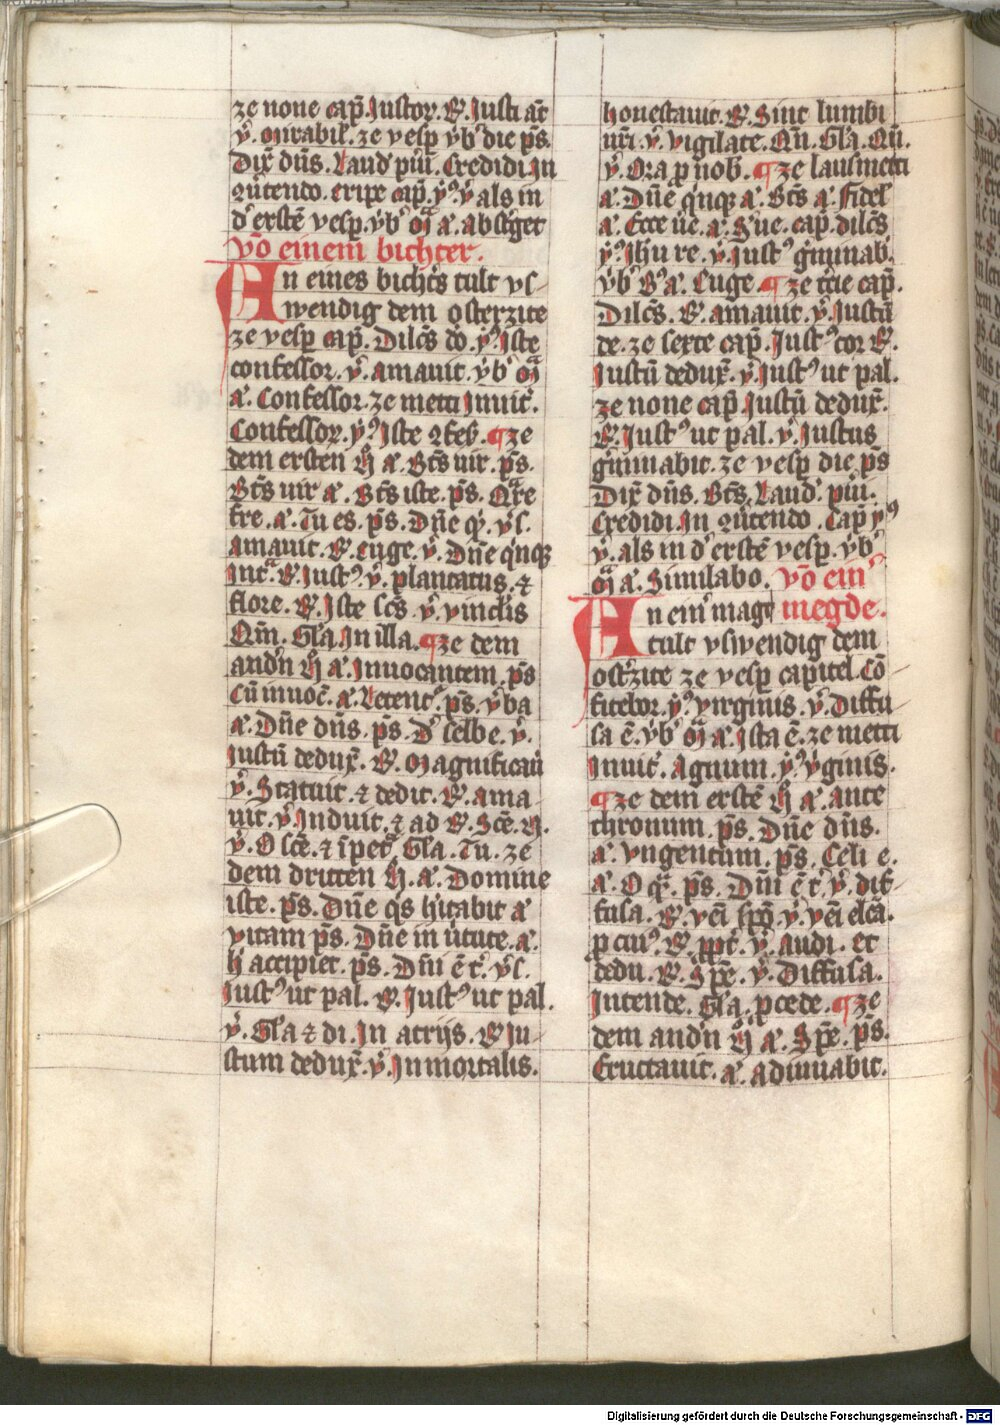 ze none cap̄. Iustor̄. R̷. Iusti aūt
v̄. Mirabil̄. ze vesp̄ vb̾ die ps̄.
Dix̄ dn̄s. Laud̾ pūi. Credidi. In
9ūtendo. eripe cap̄. y᷒⁹ v̾ als in
d̾ erstē vesp̄. vb̾ m̄ a̾. abst̾get
vō einem bichter.
An eines bicht̾s tult vs-
wendig dem osterzite
ze vesp̄ cap̄. Dilc̄s do. y᷒⁹. Iste
confessor. v̾. amauit. vb̾ m̄
a̾. Confessor. ze metti Inuit̾.
Confessor. y᷒⁹. Iste 9fes̾. ¶ze
dem ersten n̄ a̾. Bt̄s uir. ps̄.
Bt̄s uir a̾. Bt̄s iste. ps̄. Quare
fre. a̾. Tu es. ps̄. Dn̄e q̾. vs̾.
amauit. R̷. euge. v̾. Dn̄e q̾nq3
Int̾a. R̷ Iust⁹. v̾. plantatus. ⁊
flore. R̷. Iste sc̄s v̾ vinclis
Qm̄. Gl̄a. In illa. ¶ze dem
and̾n n̄ a̾. Inuocantem. ps̄
Cū inuoc̄. a̾. Letent̾. ps̄. v̾ba
a̾. Dn̄e dn̄s. ps̄. D̾ selbe. v̾.
Iustū dedux̄. R̷. Magnificaū
v̾. Statuit. ⁊ dedit. R̷. ama
uit. v̾. Induit. ⁊ ad R̷. Sc̄e. N.
v̾. O sc̄e. ⁊ īpet̾. Gl̄a. Tu. ze
dem dritten n̄. a̾. Domine
iste. ps̄. Dn̄e q̾s h̾itabit a̾
vitam ps̄. Dn̄e in u̾tute. a̾.
h̾ accipiet. ps̄. Dn̄i ē t̾. vs̾.
Iust⁹ ut pal. R̷. Iust⁹ ut pal.
v̾. Gl̄a ⁊ di. In atrijs. R̷ Iu-
stum dedux̄. v̾. Inmortalis.
honestauit. R̷. Sint lumbi
ur̄i. v̾. vigilate. Qm̄. Gl̄a. Qm̄.
v̾. Ora p nob̾. ¶ze lausmetti
a̾. Dn̄e q̾nq3 a̾. Bt̄s a̾. Fidel̾
a̾. Ecce ue̾. a̾. S̾ue. cap̄. dilc̄s
y᷒⁹. Ih̄u re. v̾. iust⁹ g̾minab̾.
vb̾ B̾ a̾. Euge. ¶ze t̾cie cap̄.
Dilc̄s. R̷. amauit. v̾. Iustū
de. ze sexte cap̄. Iust⁹ cor R̷.
Iustū dedux̄. v̾. Iust⁹ ut pal.
ze none cap̄ Iustū dedux̄.
R̷. Iust⁹ ut pal. v̾. Iustus
g̾minabit. ze vesp̄ die ps̄
Dix̄ dn̄s. Bt̄s. Laud̾. pūi.
Credidi In 9ūtendo. Cap̄ y᷒⁹
v̾. als in d̾ erstē vesp̄. vb̾
m̄ a̾. Similabo. vō ein̾
An ein̾ magt megde.
tult vswendig dem
ost̾zite ze vesp̄ capitel. Cō
fitebor. y᷒⁹. virginis. v̾. Diffu
sa ē. vb̾ m̄ a̾. Ista ē. ze metti
Inuit̾. Agnum. y᷒⁹. v̾ginis.
¶ze dem erstē n̄ a̾. ante
thronum. ps̄. Dn̄e dn̄s.
a̾. vngentum. ps̄. Celi e.
a̾. O q̾. ps̄. Dn̄i ē t̾. v̾. dif-
fusa. R̷. veni spō v̾. veni elc̄a.
p cui⁹. R̷. ppt̾. v̾. audi. et
dedu. R̷. Spē. v̾. Diffusa.
Intende. Gl̄a. pcede. ¶ze
dem and̾n n̄ a̾. Spē. ps̄.
Eructauit. a̾. adiuuabit.
Digitalisierung gefördert durch die Deutsche Forschungsgemeinschaft - DFG